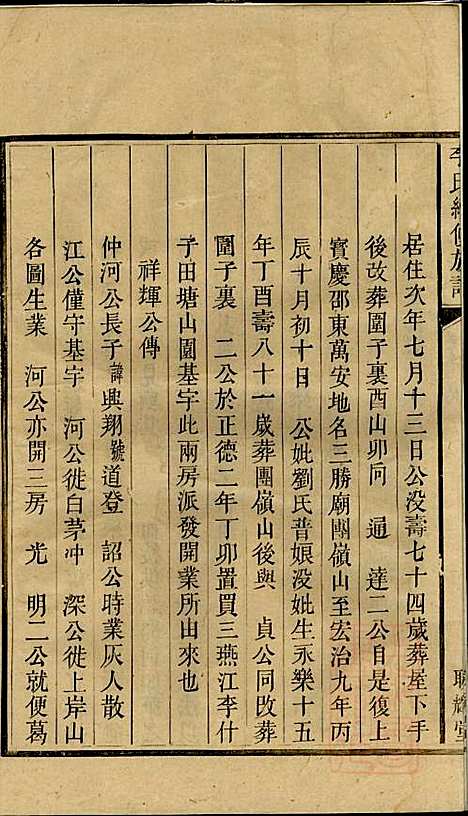 李氏續修族譜
居住次年七月十三日公没壽七十四歲葬屋下手
後改葬圍子裏酉山卯向　逼　達二公自是復上
寳慶邵東萬安地名三勝廟團嶺山至宏治九年丙
辰十月初十日　公妣劉氏普娘没妣生永樂十五
年丁酉壽八十一歲葬團嶺山後與　貞公同改葬
圍子裏　二公於正德二年丁卯置買三燕江李什
子田塘山園基宇此兩房派發開業所由來也
祥輝公傳
仲河公長子諱興翔號道登　詔公時業灰人散
江公僅守基宇　河公徙白茅冲　深公徙上岸山
各圖生業　河公亦開三房　光　明二公就便葛